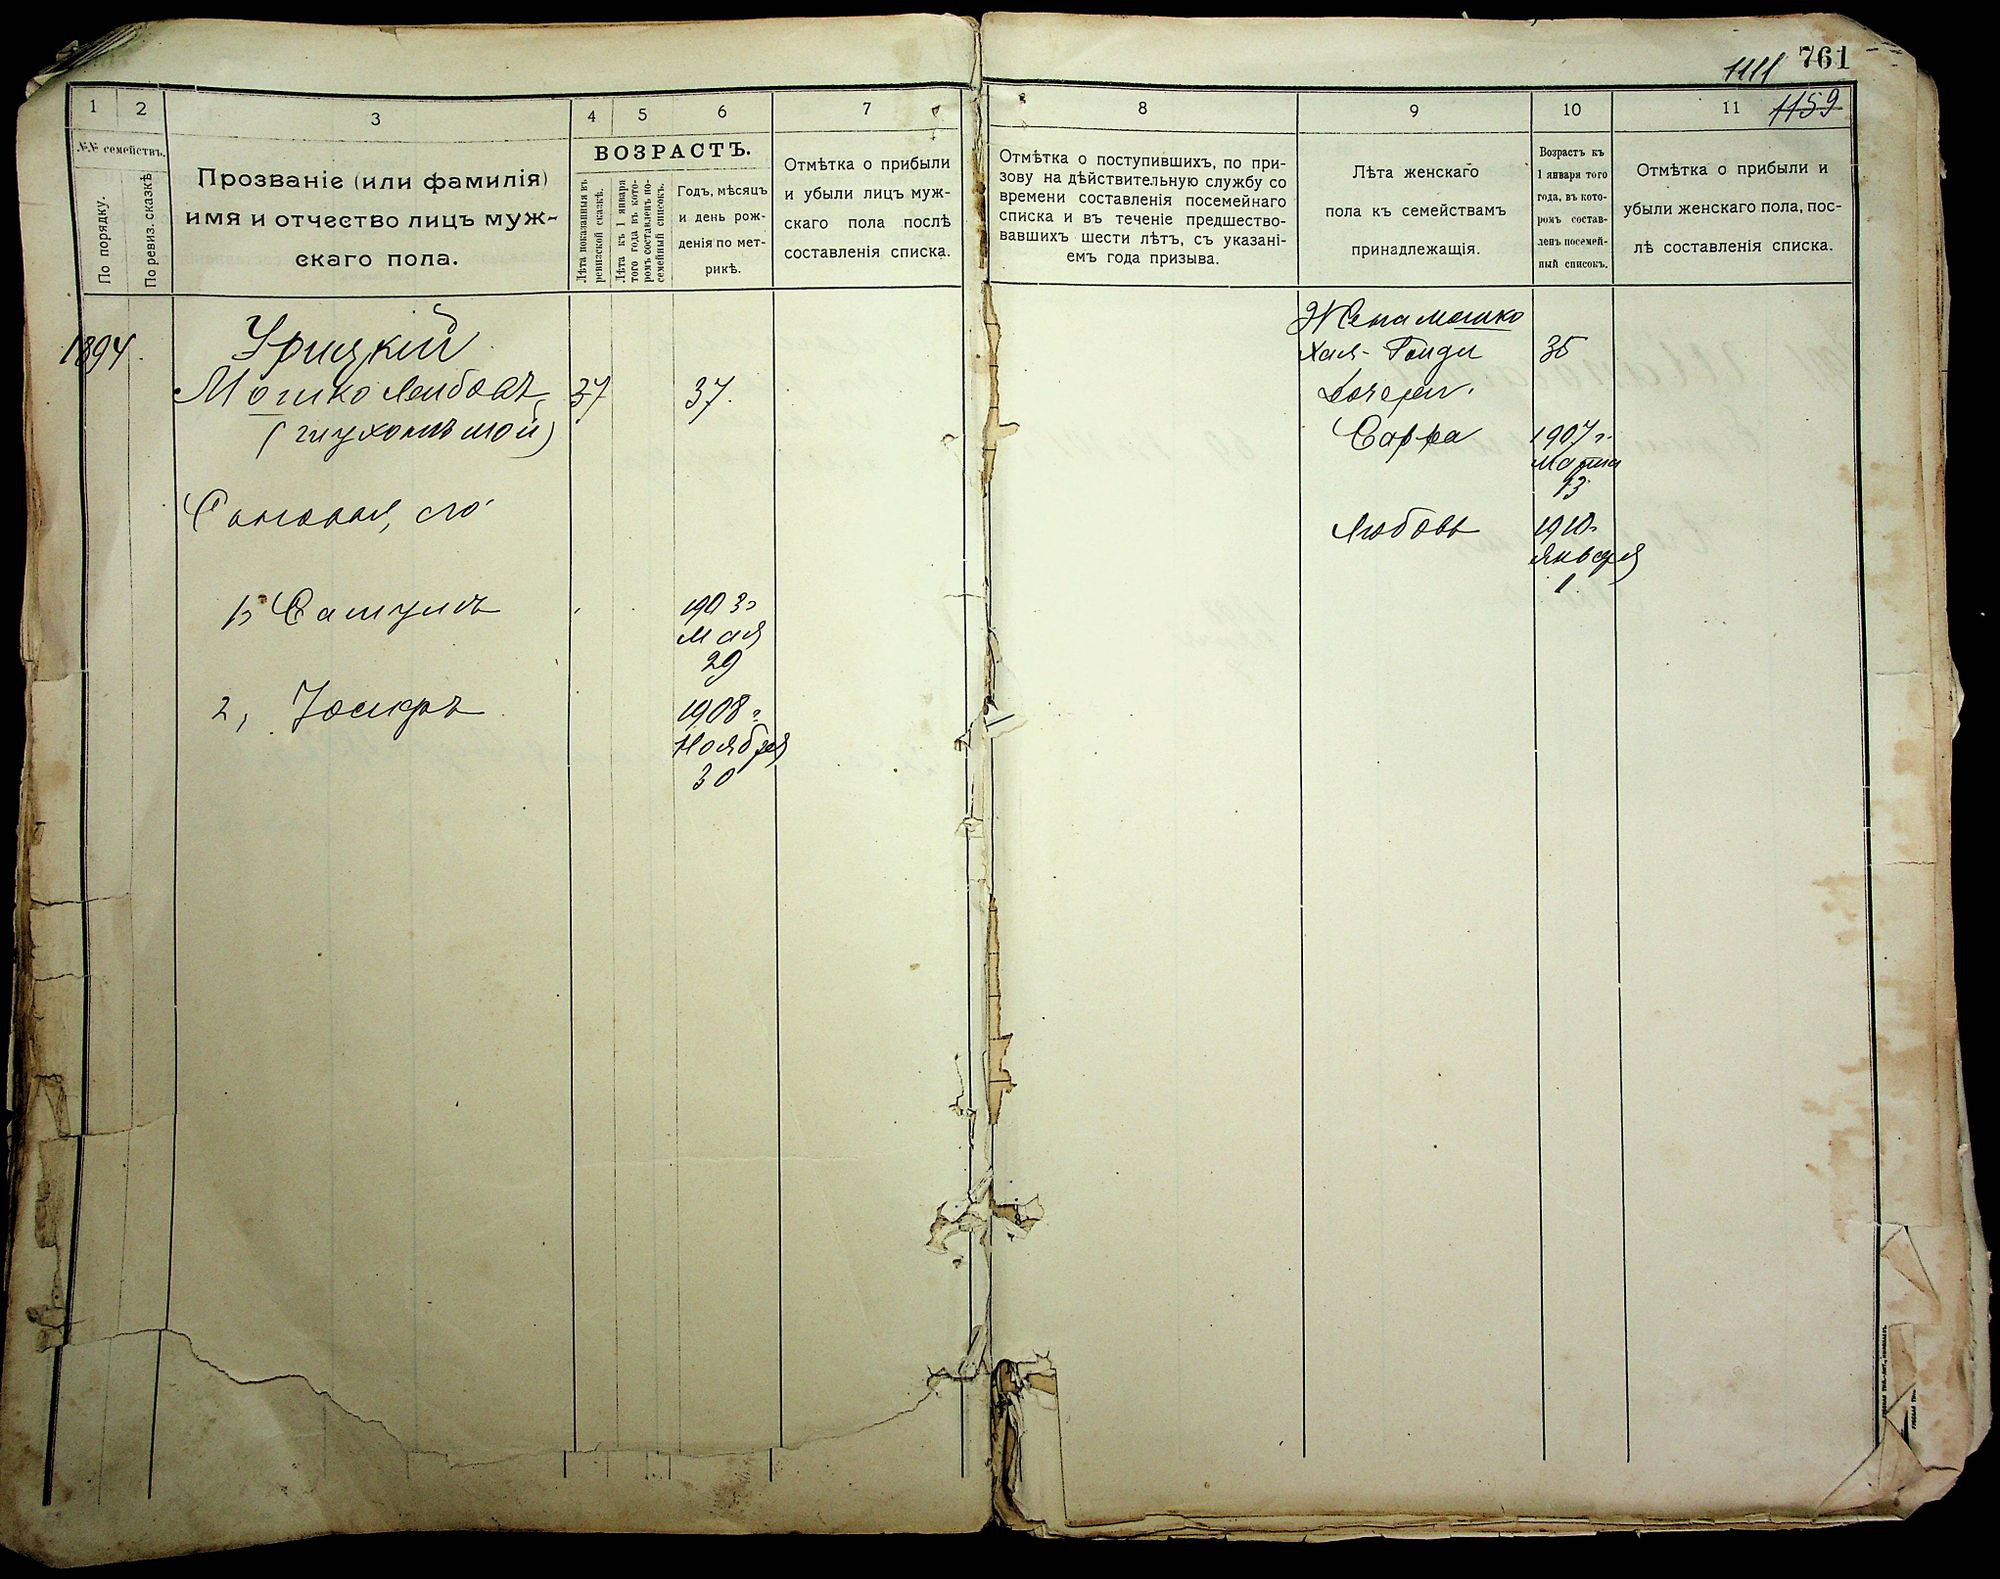 761
1111
1159
1
2
3
4
5
6
7
8
9
10
11
№№ семействъ.
По порядку.
По ревиз. сказкѣ
Прозваніе (или фамилія)
имя и отчество лицъ муж-
скаго пола.
ВОЗРАСТЪ.
Лѣта показанныя къ
ревизской сказкѣ.
Лѣта къ 1 января
того года въ кото-
ромъ составленъ по-
семейный списокъ.
Годъ, мѣсяцъ
и день рож-
денія по мет-
рикѣ.
Отмѣтка о прибыли
и убыли лицъ муж-
скаго пола послѣ
составленія списка.
Отмѣтка о поступившихъ, по при-
зову на дѣйствительную службу со
времени составленія посемейнаго
списка и въ теченіе предшество-
вавшихъ шести лѣтъ, съ указані-
емъ года призыва.
Лѣта женскаго
пола къ семействамъ
принадлежащія.
Возрастъ къ
1 января того
года, въ кото-
ромъ состав-
ленъ посемей-
ный списокъ.
Отмѣтка о прибыли и
убыли женскаго пола, пос-
лѣ составленія списка.
1894.
Урицкій
Мошко Лейбовъ,
37
37.
(глухонѣмой)
Сыновья, его
1) Самуилъ
1903 г
Мая
29
2, Іосифъ
1908 г
Ноября
30
Жена Мошко
Хая-Гольди
35
Дочери.
Сарра
1907 г.
Марта
13
Любовь
1910 г
Января
1